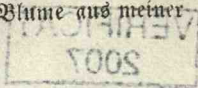 Blume aus meiner
VERIFICAT
2007